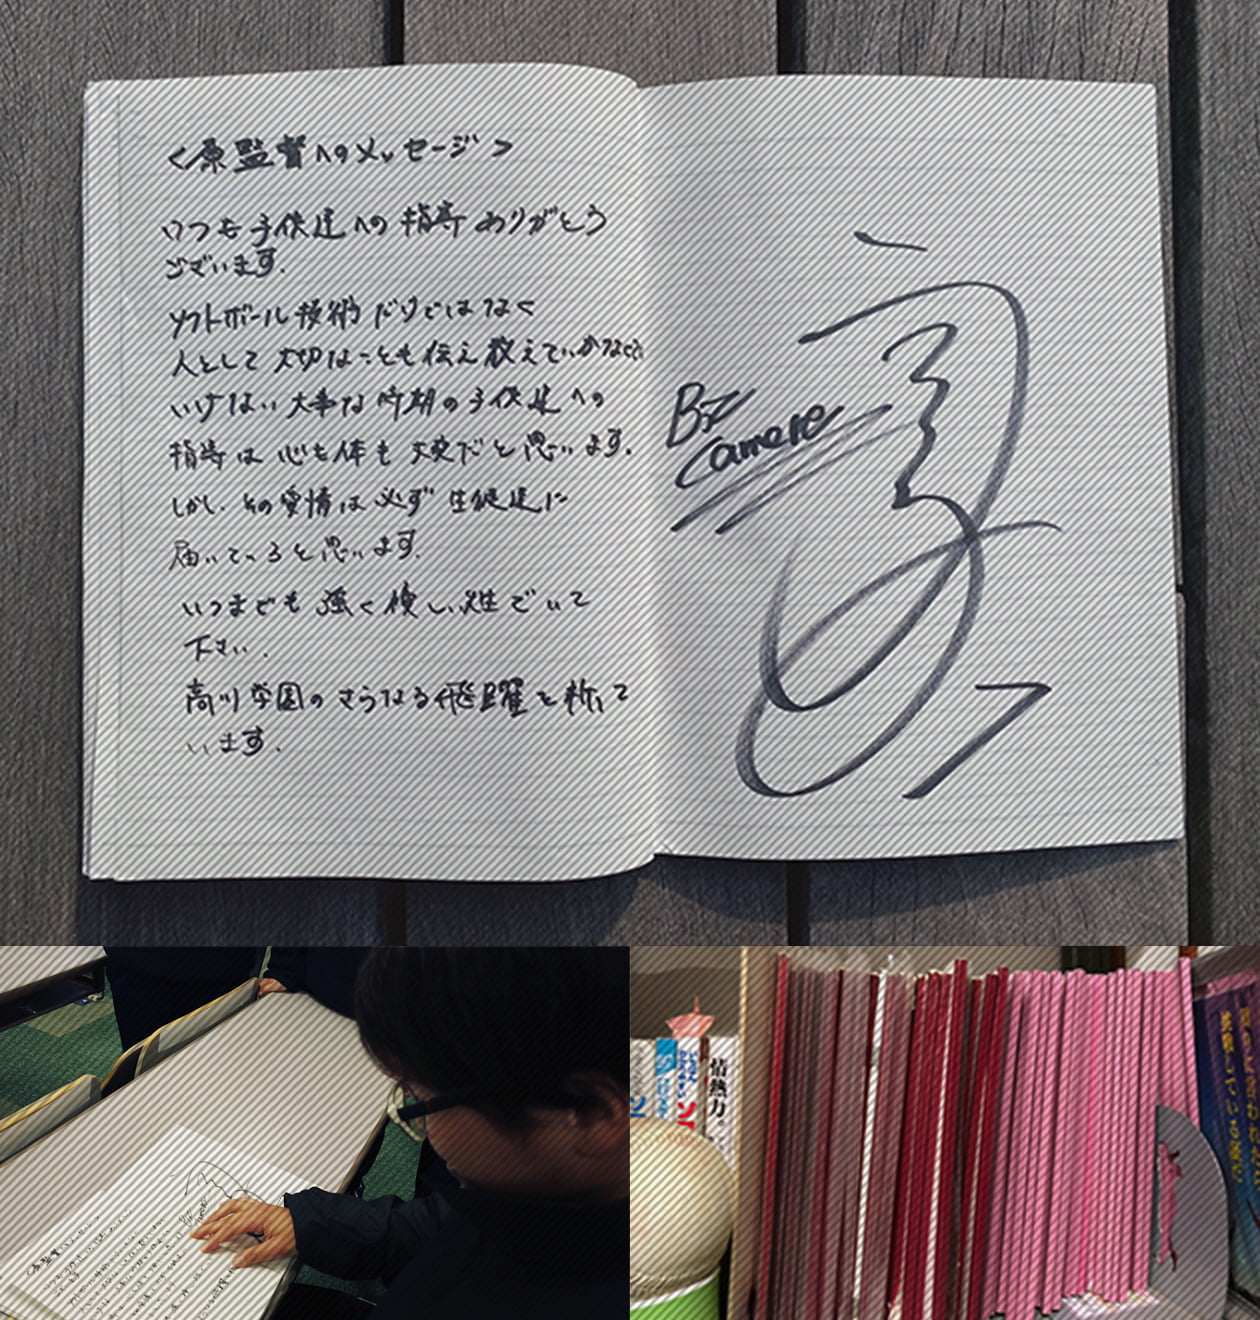 <原監督へのメッセージ>
いつも子供達への指導ありがとう
ございます.
ソフトボール技術だけではなく
人として大切なことも伝え教えていかなくては
いけない大事な時期の子供達への
指導は心も体も大変だと思います.
しかし、その愛情は必ず生徒達に
届いていると思います.
いつまでも強く優しい先生でいて
下さい.
高川学園のさらなる飛躍を祈って
います.
By
Camere
情熱力。